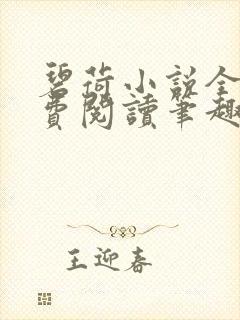 碧荷小说全
费阅读笔趣
王迎春